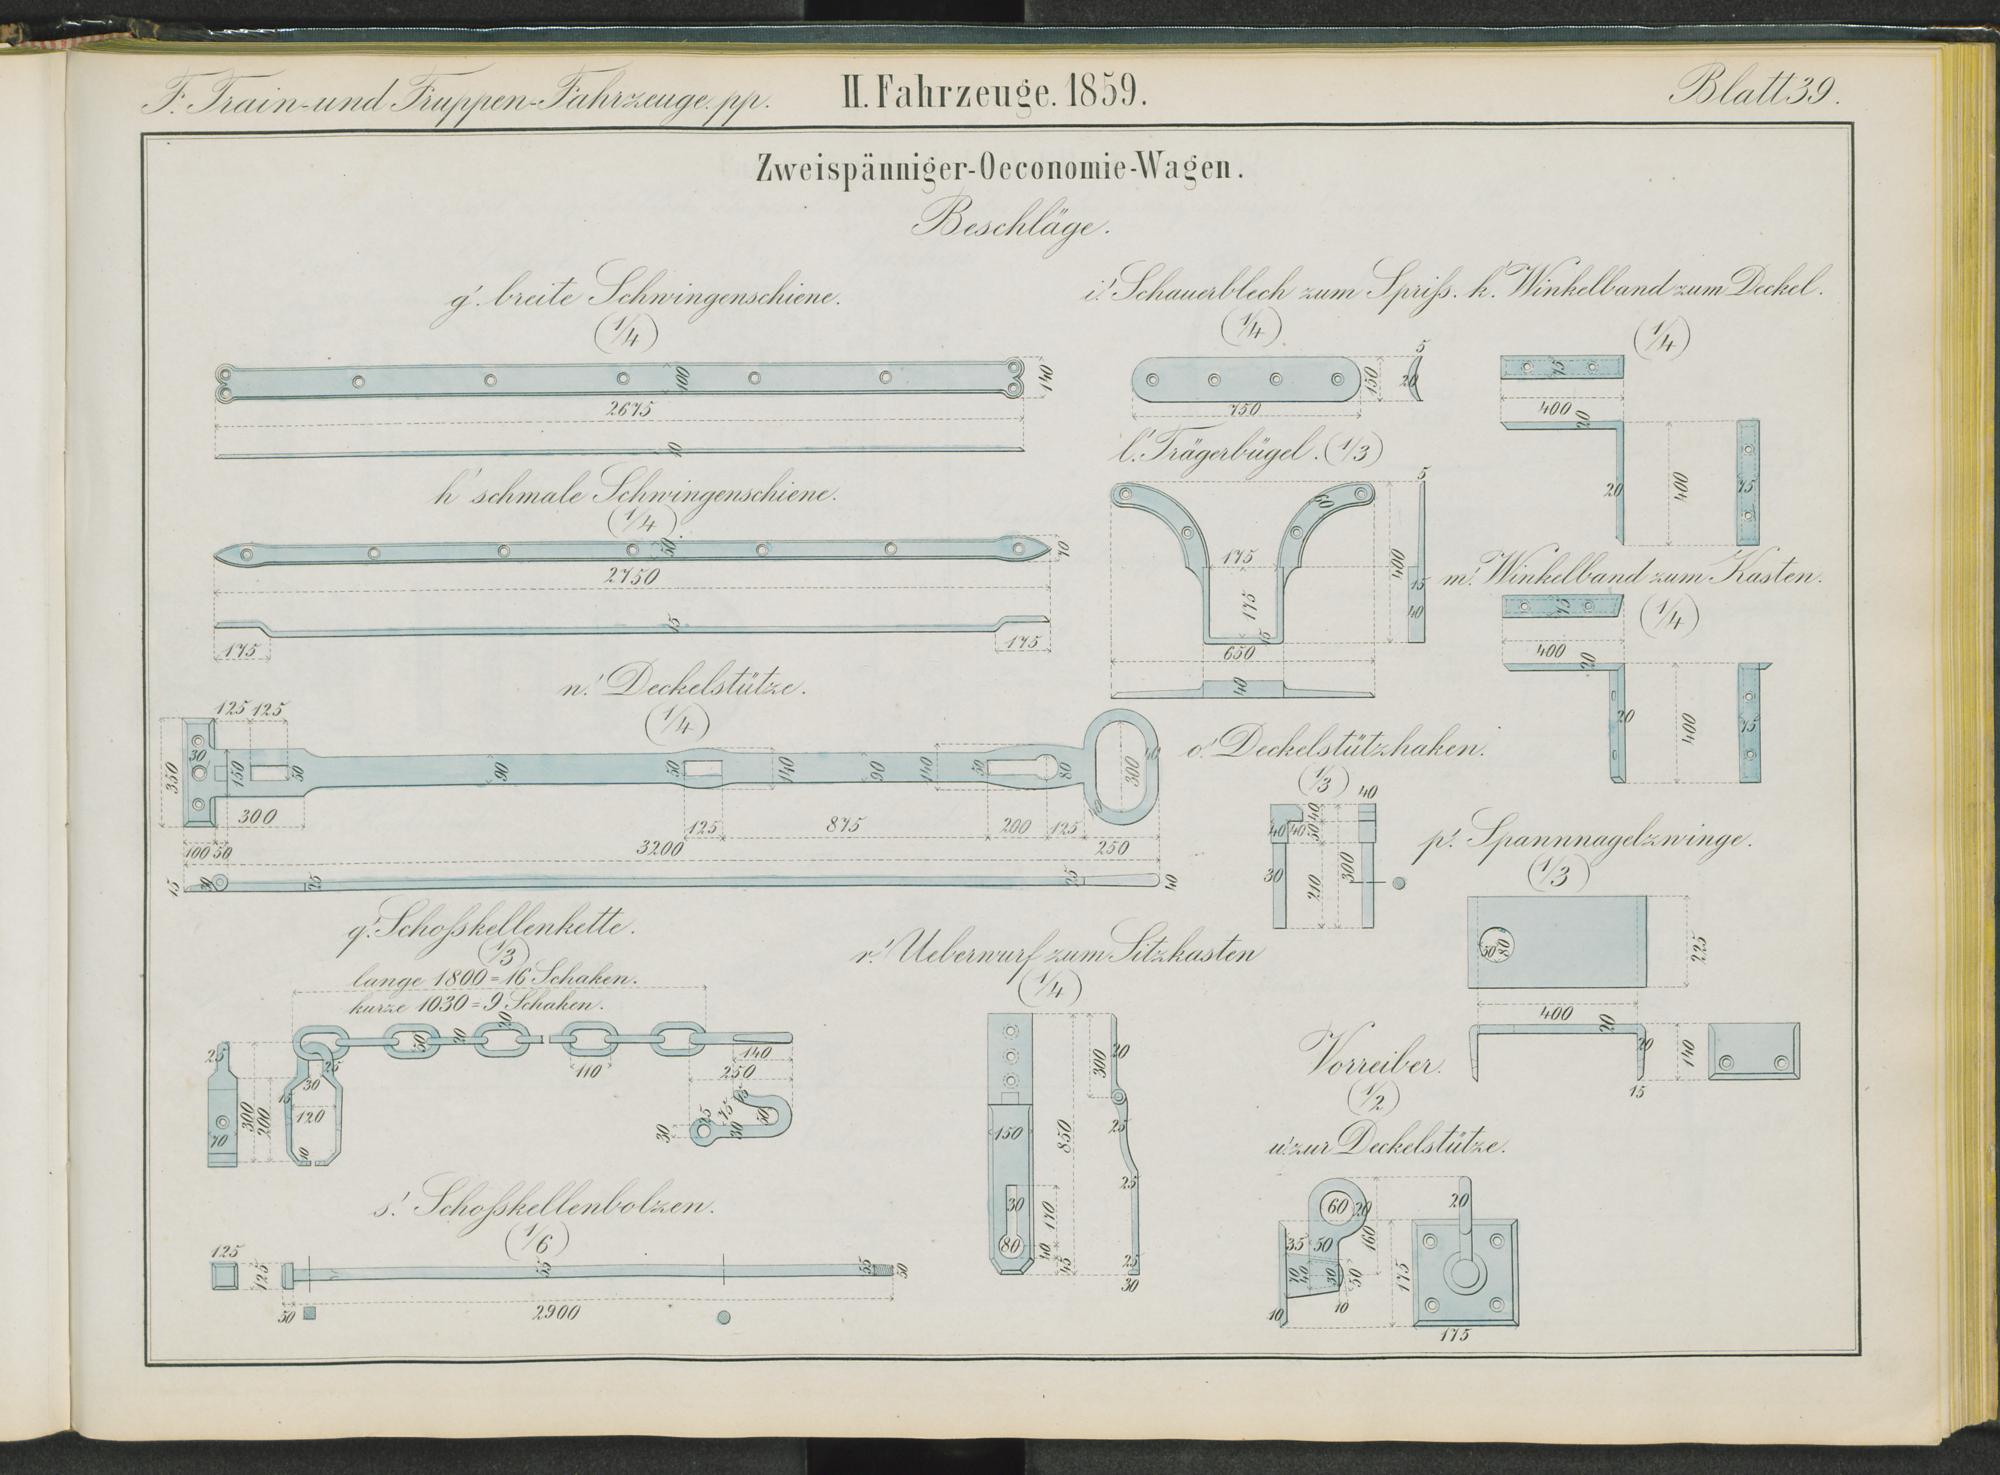 F. Train- und Truppen-Fahrzeuge. pp.
II. Fahrzeuge. 1859.
Blatt 39.
Zweispänniger-Oeconomie-Wagen.
Beschläge.
g'. breite Schwingenschiene.
(1/4)
100
140
2675
10
h' schmale Schwingenschiene.
(1/4)
50
70
2750
15
175
175
i'. Schauerblech zum Spriſs.
(1/4)
150
5
20
750
k'. Winkelband zum Deckel.
(1/4)
75
400
20
20
400
75
l'. Trägerbügel. (1/3)
60
5
175
400
175
15
40
15
650
40
m'. Winkelband zum Kasten.
(1/4)
75
400
20
20
400
75
n'. Deckelstütze.
(1/4)
125 125
350
30
150
50
90
50
140
90
140
50
80
300
40
300
125
875
200
125
100 50
3200
250
15
30
25
25
40
o'. Deckelstützhaken.
(1/3)
40
40 40
40
50
30
210
300
p'. Spannnagelzwinge.
(1/3)
50
80
225
400
20
20
140
15
q'. Schoſskellenkette.
(1/3)
lange 1800 = 16 Schaken.
kurze 1030 = 9 Schaken.
25
50
20
20
110
140
250
25
30
15
120
300
200
70
10
30
25
15
30
50
r'. Ueberwurf zum Sitzkasten
(1/4)
300
20
150
850
25
25
30
170
80
40
45
25
30
s'. Schoſskellenbolzen.
(1/6)
125
125
55
55
50
50
2900
Vorreiber.
(1/2)
u'. zur Deckelstütze.
60
20
20
35
50
160
70
40
30
50
175
10
10
175